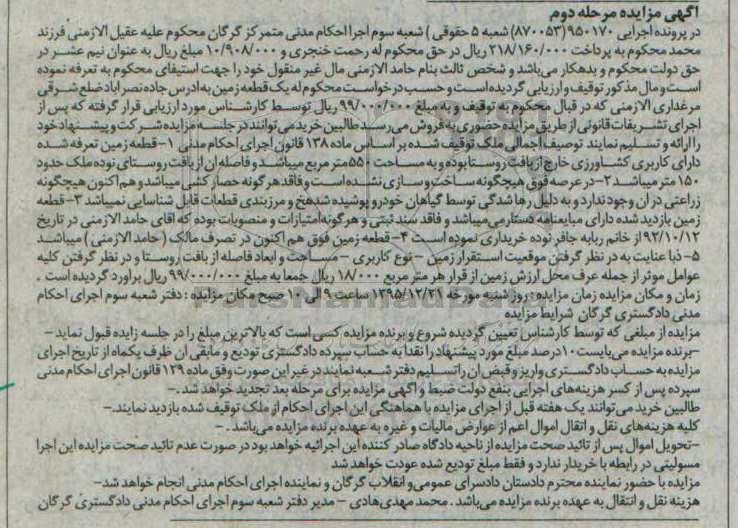 آگهی مزایده مرحله دوم
در پرونده اجرایی ۹۵۰۱۷۰(۸۷۰۰۵۳) شعبه ۵ حقوقی ) شعبه سوم اجرا احکام مدنی متمرکز گرگان محکوم علیه عقیل الازمنی فرزند
محمد محکوم به پرداخت ۲۱۸/۱۶۰/۰۰۰ ریال در حق محکوم له رحمت خنجری و ۱۰/۹۰۸/۰۰۰ مبلغ ریال به عنوان نیم عشر در
حق دولت محکوم و بدهکار می‌باشد و شخص ثالث بنام حامد الازمنی مال غیر منقول خود را جهت استیفای محکوم به تعرفه نموده
است و مال مذکور توقیف و ارزیابی گردیده است و حسب درخواست محکوم له یک قطعه زمین به ادرس جاده نصرآباد ضلع شرقی
مرغداری الازمنی که در قبال محکوم به توقیف و به مبلغ ۹۹/۰۰۰/۰۰۰ ریال توسط کارشناس مورد ارزیابی قرار گرفته که پس از
اجرای تشریفات قانونی از طریق مزایده حضوری به فروش می‌رسد طالبین خرید می‌توانند در جلسه مزایده شرکت و پیشنهاد خود
را ارائه و تسلیم نمایند توصیف اجمالی ملک توقیف شده بر اساس ماده ۱۳۸ قانون اجرای احکام مدنی ۱-قطعه زمین تعرفه شده
دارای کاربری کشاورزی خارج از بافت روستا بوده و به مساحت ۵۵۰ متر مربع میباشد و فاصله ان از بافت روستای نوده ملک حدود
۱۵۰ متر میباشد ۲-در عرصه فوق هیچگونه ساخت و سازی نشده است و فاقد هر گونه حصار کشی میباشد و هم اکنون هیچگونه
زراعتی در ان وجود ندارد و به دلیل رها شدگی توسط گیاهان خودرو پوشیده شدهخ و مرزبندی قطعات قابل شناسایی نمیباشد ۳-قطعه
زمین بازدید شده دارای مبایعنامه دستار می‌میباشد و فاقد سند ثبتی و هر گونه امتیازات و منصوبات بوده که اقای حامد الازمنی در تاریخ
۹۲/۱۰/۱۲ از خانم ربابه جافر نوده خریداری نموده است ۴-قطعه زمین فوق هم اکنون در تصرف مالک ( حامد الازمنی ) میباشد
۵- ذیا عنایت به در نظر گرفتن موقعیت استقرار زمین - نوع کاربری - مساحت و ابعاد فاصله از بافت روستا و در نظر گرفتن کلیه
عوامل موثر از جمله عرف محل ارزش زمین از قرار هر متر مربع ۱۸/۰۰۰ ریال جمعا به مبلغ ۹۹/۰۰۰/۰۰۰ ریال براورد گردیده است .
زمان و مکان مزایده زمان مزایده : روز شنبه مورخه ۱۳۹۵/۱۲/۲۱ ساعت ۹ الی ۱۰ صبح مکان مزایده : دفتر شعبه سوم اجرای احکام
مدنی دادگستری گرگان شرایط مزایده
مزایده از مبلغی که توسط کارشناس تعیین گردیده شروع و برنده مزایده کسی است که بالاترین مبلغ را در جلسه زایده قبول نماید -
-برنده مزایده می‌بایست ۱۰ درصد مبلغ مورد پیشنهاد را نقدا به حساب سپرده دادگستری تودیع و مابقی ان ظرف یکماه از تاریخ اجرای
مزایده به حساب دادگستری واریز و قبض ان را تسلیم دفتر شعبه نمایند در غیر این صورت وفق ماده ۱۲۹ قانون اجرای احکام مدنی
سپرده پس از کسر هزینه‌های اجرایی بنفع دولت ضبط و آگهی مزایده برای مرحله بعد تجدید خواهد شد .-
طالبین خرید می‌توانند یک هفته قبل از اجرای مزایده با هماهنگی این اجرای احکام از ملک توقیف شده بازدید نمایند.-
کلیه هزینه‌های نقل و انتقال اموال اعم از عوارض مالیات و غیره به عهده برنده مزایده می‌باشد .-
-تحویل اموال پس از تائید صحت مزایده از ناحیه دادگاه صادر کننده این اجرائیه خواهد بود در صورت عدم تائید صحت مزایده این اجرا
مسولیتی در رابطه با خریدار ندارد و فقط مبلغ تودیع شده عودت خواهد شد
مزایده با حضور نماینده محترم دادستان دادسرای عمومی و انقلاب گرگان و نماینده اجرای احکام مدنی انجام خواهد شد-
هزینه نقل و انتقال به عهده برنده مزایده می‌باشد . محمد مهدی هادی - مدیر دفتر شعبه سوم اجرای احکام مدنی دادگستری گرگان